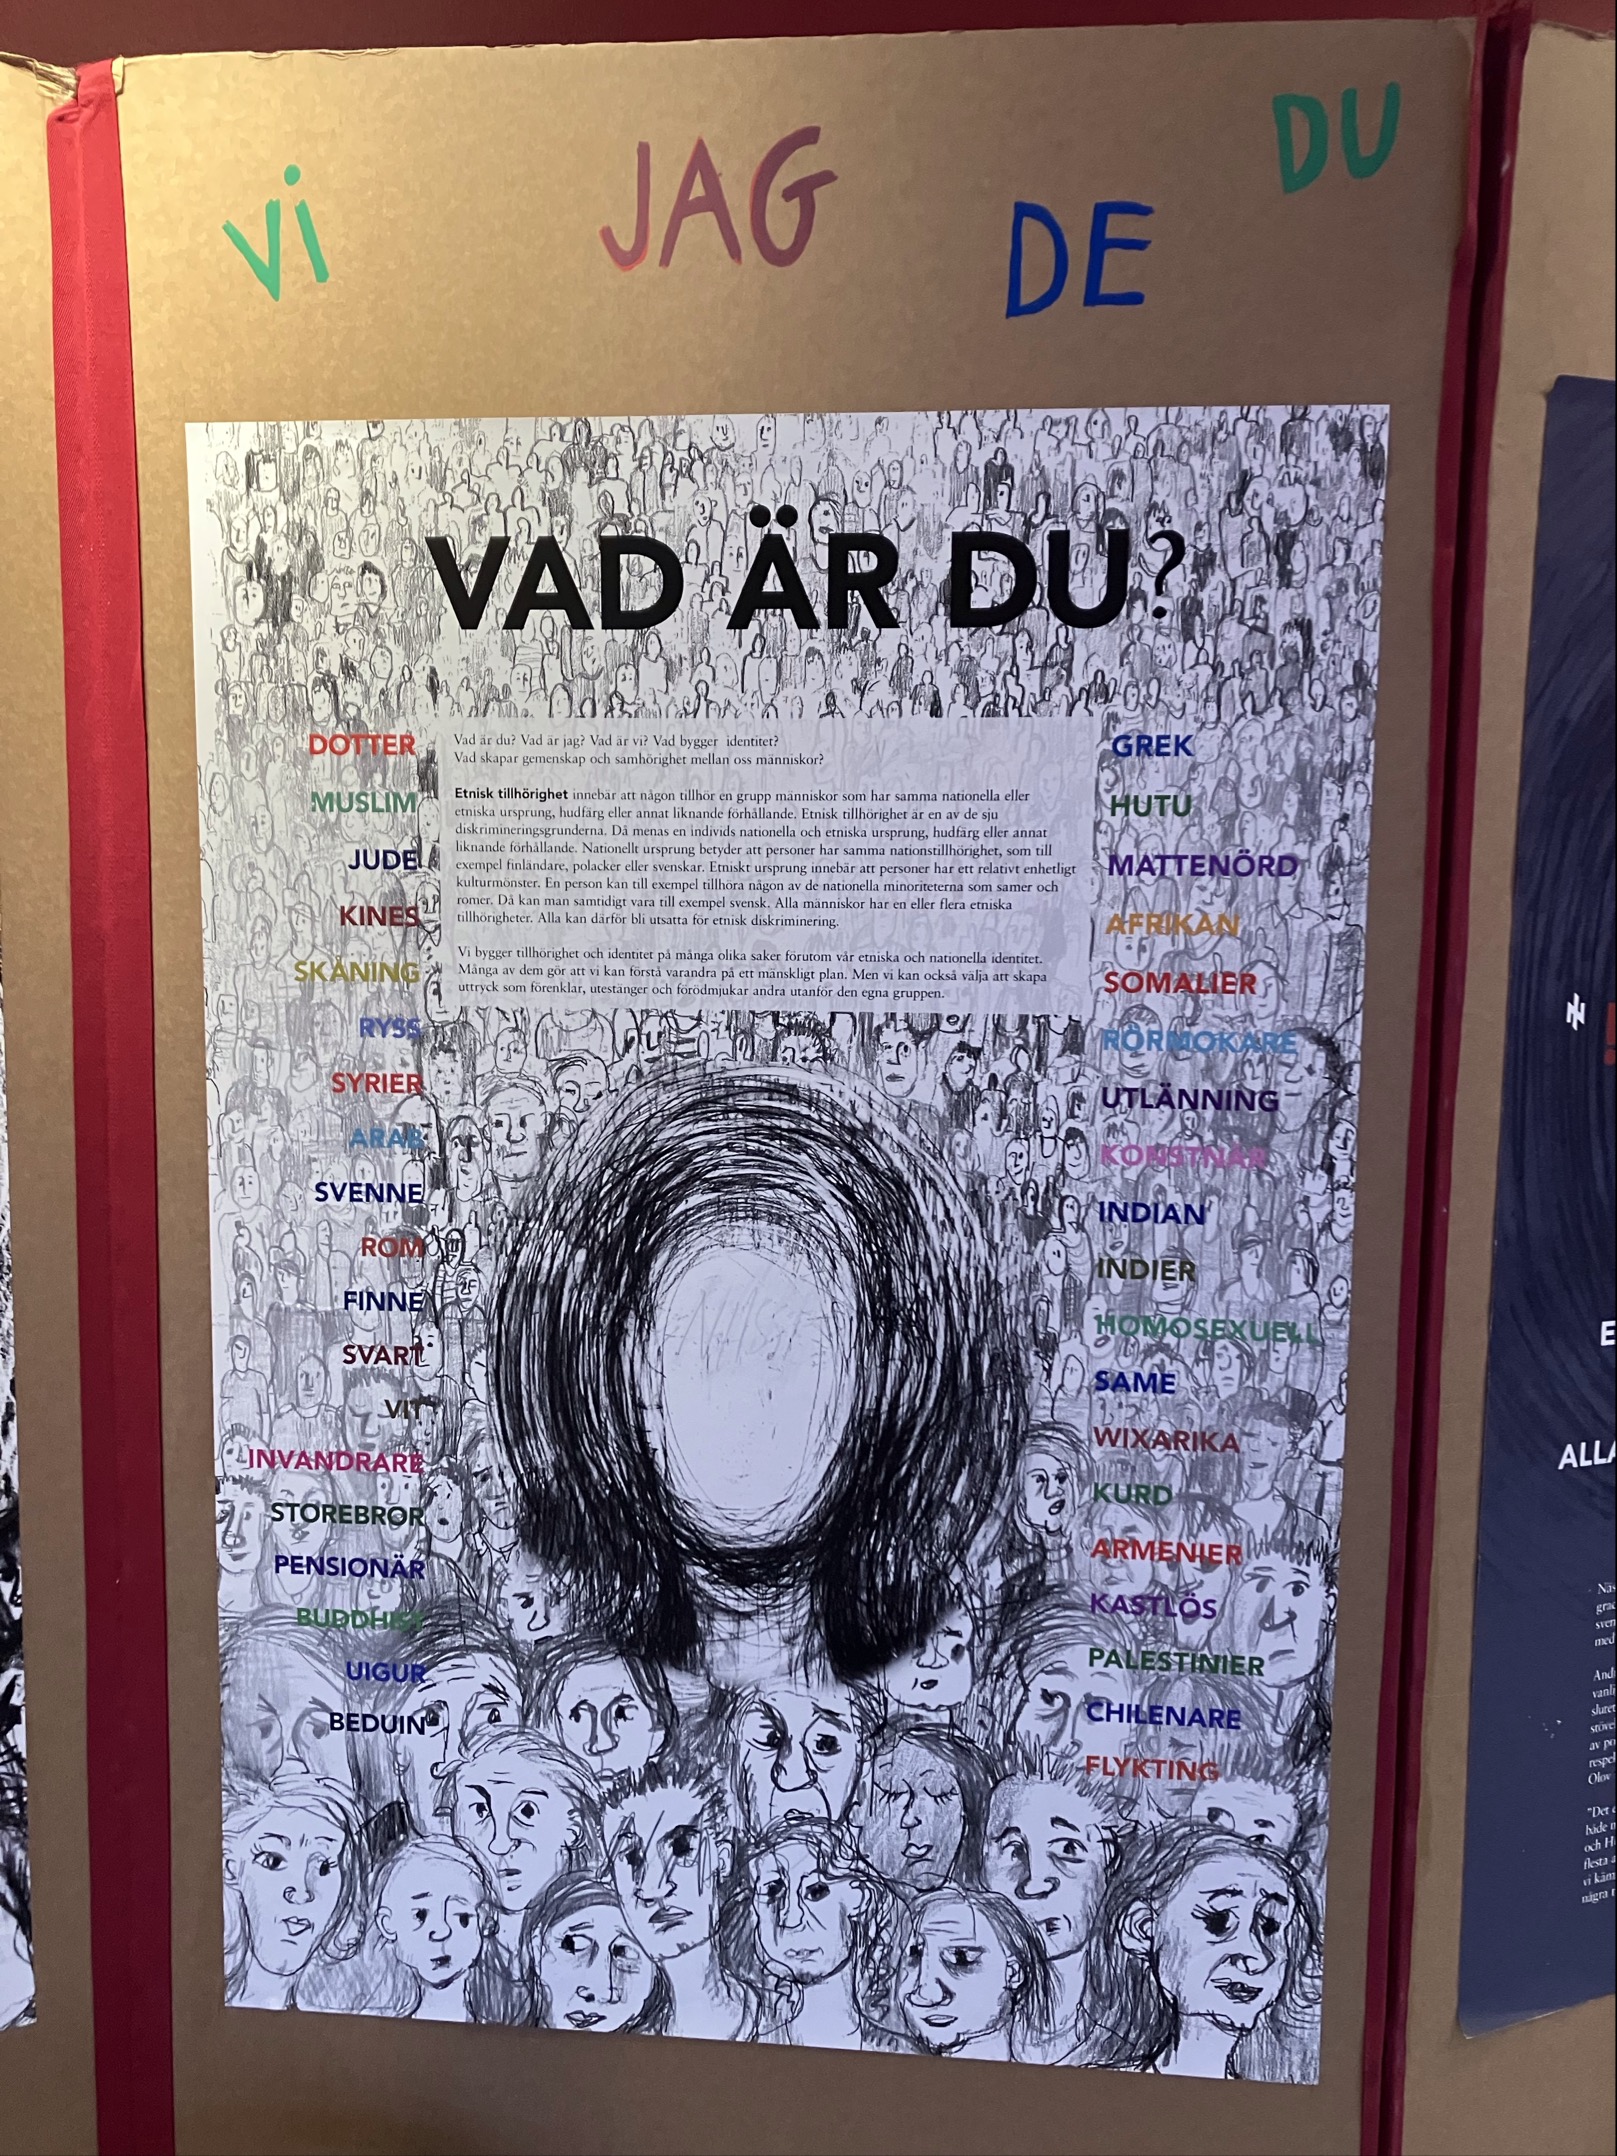 Vi
JAG
DE
DU
VAD ÄR DU?
DOTTER
MUSLIM
JUDE
KINES
SKÅNING
RYSS
SYRIER
ARAB
SVENNE
ROM
FINNE
SVART
VIT
INVANDRARE
STOREBROR
PENSIONÄR
BUDDHIST
UIGUR
BEDUIN
Vad är du? Vad är jag? Vad är vi? Vad bygger identitet?
Vad skapar gemenskap och samhörighet mellan oss människor?
Etnisk tillhörighet innebär att någon tillhör en grupp människor som har samma nationella eller
etniska ursprung, hudfärg eller annat liknande förhållande. Etnisk tillhörighet är en av de sju
diskrimineringsgrunderna. Då menas en individs nationella och etniska ursprung, hudfärg eller annat
liknande förhållande. Nationellt ursprung betyder att personer har samma nationstillhörighet, som till
exempel finländare, polacker eller svenskar. Etniskt ursprung innebär att personer har ett relativt enhetligt
kulturmönster. En person kan till exempel tillhöra någon av de nationella minoriteterna som samer och
romer. Då kan man samtidigt vara till exempel svensk. Alla människor har en eller flera etniska
tillhörigheter. Alla kan därför bli utsatta för etnisk diskriminering.
Vi bygger tillhörighet och identitet på många olika saker förutom vår etniska och nationella identitet.
Många av dem gör att vi kan förstå varandra på ett mänskligt plan. Men vi kan också välja att skapa
uttryck som förenklar, utestänger och förödmjukar andra utanför den egna gruppen.
GREK
HUTU
MATTENÖRD
AFRIKAN
SOMALIER
RÖRMOKARE
UTLÄNNING
KONSTNÄR
INDIAN
INDIER
HOMOSEXUELL
SAME
WIXARIKA
KURD
ARMENIER
KASTLÖS
PALESTINIER
CHILENARE
FLYKTING
E
ALLA
med
av po
Olov
"Det
och H
flesta a
vi käm
några